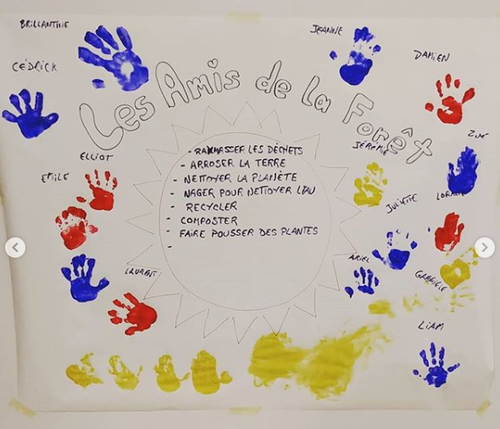 BRILLANTINE
JEANNE
CÉDRICK
DAMIEN
Les Amis de La Forêt
ZOÉ
ELLIOT
JÉRÉMIE
EMILE
- RAMASSER LES DÉCHETS
- ARROSER LA TERRE
- NETTOYER LA PLANÈTE
- NAGER POUR NETTOYER L'EAU
- RECYCLER
- COMPOSTER
- FAIRE POUSSER DES PLANTES
-
JULIETTE
LAURENT
ARIEL
GABRIELE
LIAM